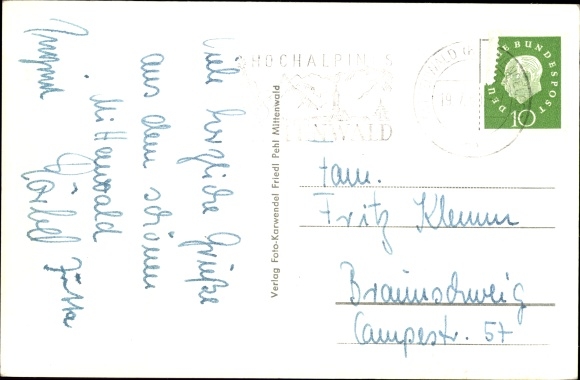 Viele herzliche Grüße
aus dem schönen
Mittenwald
Verlag Foto-Karwendel Friedl Pehl Mittenwald
HOCHALPIN S
WALD
DEUTSCHE BUNDESPOST
10
Fam.
Fritz Klemm
Braunschweig
Campestr. 57